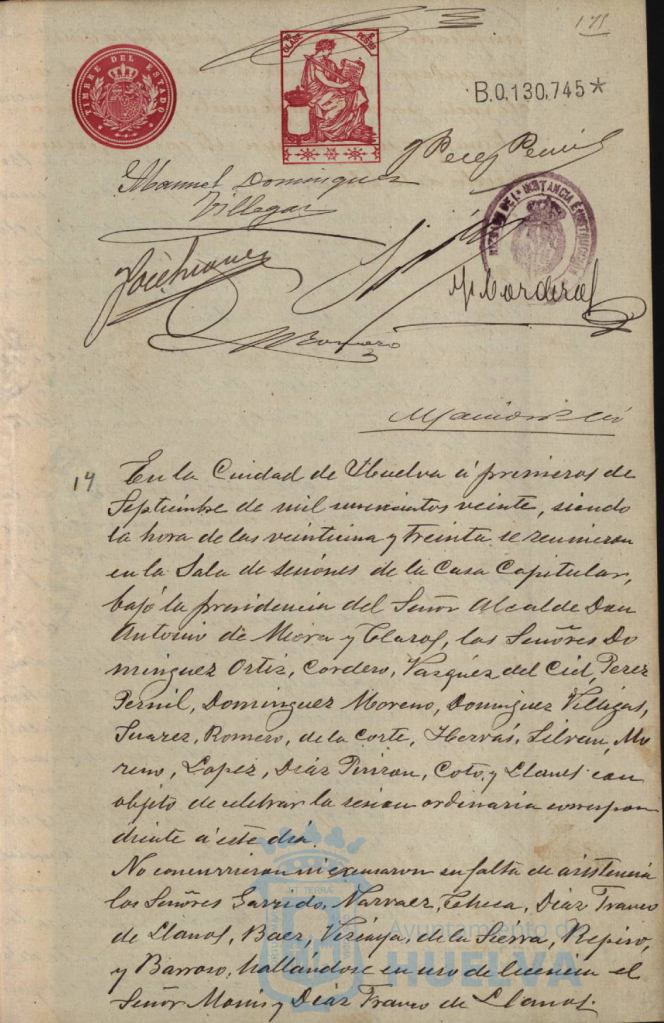 171
TIMBRE DEL ESTADO
CLASE 8ª
B.0.130,745*
Perez Pernil
Manuel Dominguez
Villegas
JUZGADO DE 1ª INSTANCIA É INSTRUCCION
M Cordero
Romero
14 En la Ciudad de Huelva á primeros de
Septiembre de mil novecientos veinte, siendo
la hora de las veintiuna y treinta se reunieron
en la Sala de sesiones de la Casa Capitular,
bajo la presidencia del Señor Alcalde Don
Antonio de Mora y Claros, los Señores Do
minguez Ortiz, Cordero, Vazquez del Cid, Perez
Pernil, Dominguez Moreno, Dominguez Villegas,
Suarez, Romero, de la Corte, Hervás, Silvan, Mo
reno, Lopez, Diaz Pinzon, Coto, y Llanes con
objeto de celebrar la sesion ordinaria correspon
diente á este dia.
No concurrieron ni excusaron su falta de asistencia
los Señores Garrido, Narvaez, Checa, Diaz Franco
de Llanos, Baez, Vizcaya, de la Sierra, Repiso,
y Barroso, hallándose en uso de licencia el
Señor Monis y Diaz Franco de Llanos.
Ayuntamiento de
HUELVA